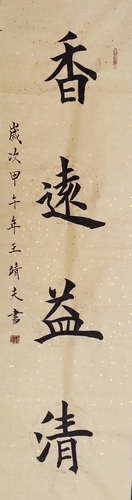 香遠益清
歲次甲午年王靖夫書